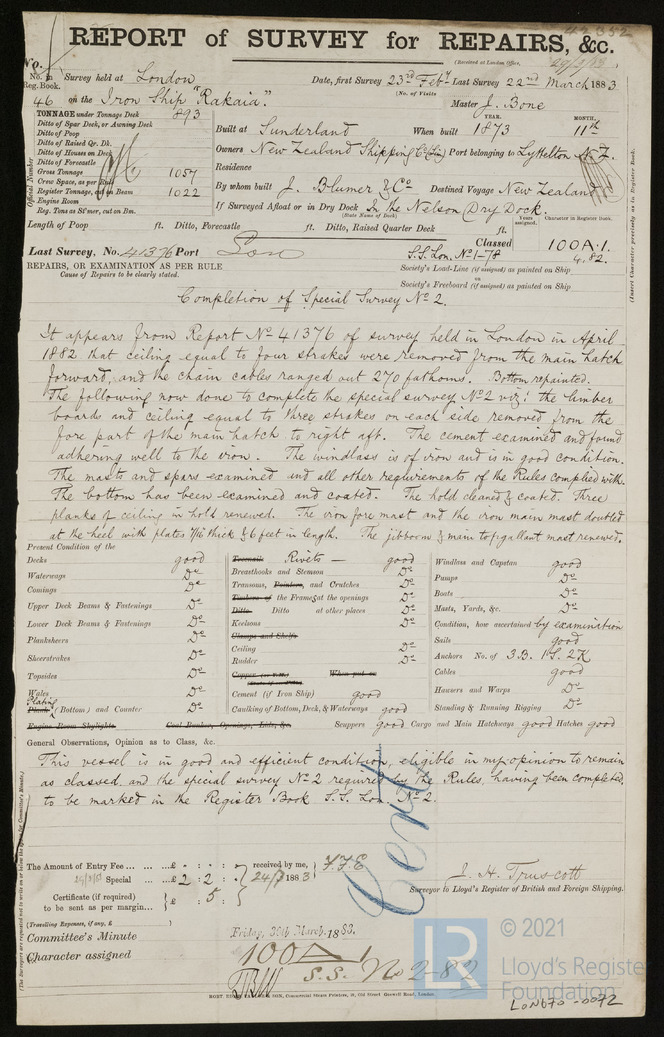 REPORT of SURVEY for REPAIRS, &c.
No.
(Received at London Office,
No. in Reg. Book. Survey held at London Date, first Survey 23rd Feby Last Survey 22nd March 1883
(No. of Visits
46 on the Iron Ship "Rakaia". Master J. Bone
TONNAGE under Tonnage Deck 893
Ditto of Spar Deck, or Awning Deck
Ditto of Poop
Ditto of Raised Qr. Dk.
Ditto of Houses on Deck
Ditto of Forecastle
Gross Tonnage 1057
Crew Space, as per Rule
Register Tonnage, cut on Beam 1022
Engine Room
Reg. Tons as St'mer, cut on Bm.
Official Number
YEAR. MONTH.
Built at Sunderland When built 1873 11th
Owners New Zealand Shipping Co (Lim) Port belonging to Lyttelton N.Z.
Residence
By whom built J. Blumer & Co Destined Voyage New Zealand
If Surveyed Afloat or in Dry Dock In the Nelson Dry Dock.
(State Name of Dock)
Length of Poop ft. Ditto, Forecastle ft. Ditto, Raised Quarter Deck ft.
Years assigned. Character in Register Book.
(Insert Character precisely as in Register Book.
Last Survey, No. 41376 Port Lon Classed 100A.1.
S.S. Lon. No 1-78 4,82.
REPAIRS, OR EXAMINATION AS PER RULE
Cause of Repairs to be clearly stated.
Society's Load-Line (if assigned) as painted on Ship
OR
Society's Freeboard (if assigned) as painted on Ship
Completion of Special Survey No 2.
It appears from Report No 41376 of survey held in London in April
1882 that ceiling equal to four strakes were removed from the main hatch
forward, and the chain cables ranged out 270 fathoms. Bottom repainted.
The following now done to complete the special survey No 2 viz: the limber
boards and ceiling equal to three strakes on each side removed from the
fore part of the main hatch to right aft. The cement examined and found
adhering well to the iron. The windlass is of iron and is in good condition.
The masts and spars examined and all other requirements of the Rules complied with.
The bottom has been examined and coated. The hold cleaned & coated. Three
planks of ceiling in hold renewed. The iron fore mast and the iron main mast doubled
at the heel with plates 7/16 thick & 6 feet in length. The jibboom & main topgallant mast renewed.
Present Condition of the
Decks good
Waterways Do
Comings Do
Upper Deck Beams & Fastenings Do
Lower Deck Beams & Fastenings Do
Planksheers Do
Sheerstrakes Do
Topsides Do
Wales Do
Plating
Plank (Bottom) and Counter Do
Engine Room Skylights. Coal Bunker, Openings, Lids, &c.
Treenails Rivets — good
Breasthooks and Stemson Do
Transoms, Pointers, and Crutches Do
Timbers of the Frames at the openings Do
Ditto Ditto at other places Do
Keelsons Do
Clamps and Shelfs
Ceiling Do
Rudder Do
When put on
Cement (if Iron Ship) good
Caulking of Bottom, Deck, & Waterways good
Scuppers good Cargo and Main Hatchways good Hatches good
Windlass and Capstan good
Pumps Do
Boats Do
Masts, Yards, &c. Do
Condition, how ascertained by examination
Sails good
Anchors No. of 3.B. 1S. 2K
Cables good
Hawsers and Warps Do
Standing & Running Rigging Do
General Observations, Opinion as to Class, &c.
This vessel is in good and efficient condition, eligible in my opinion to remain
as classed and the special survey No 2 required by the Rules, having been completed,
to be marked in the Register Book S.S. Lon. No 2.
Cert
The Amount of Entry Fee ... ... £ : :
Special ... £ 2 : 2 :
Certificate (if required) to be sent as per margin... £ : 5 :
received by me,
24/3 1883
(Travelling Expenses, if any, £ )
J. H. Truscott
Surveyor to Lloyd's Register of British and Foreign Shipping.
Committee's Minute Friday, 30th March, 1883.
Character assigned 100 A 1
S.S. No 2-82
(The Surveyors are requested not to write on or below the space for Committee's Minute.)
© 2021
LR
Lloyd's Register
Foundation
LON670-0072